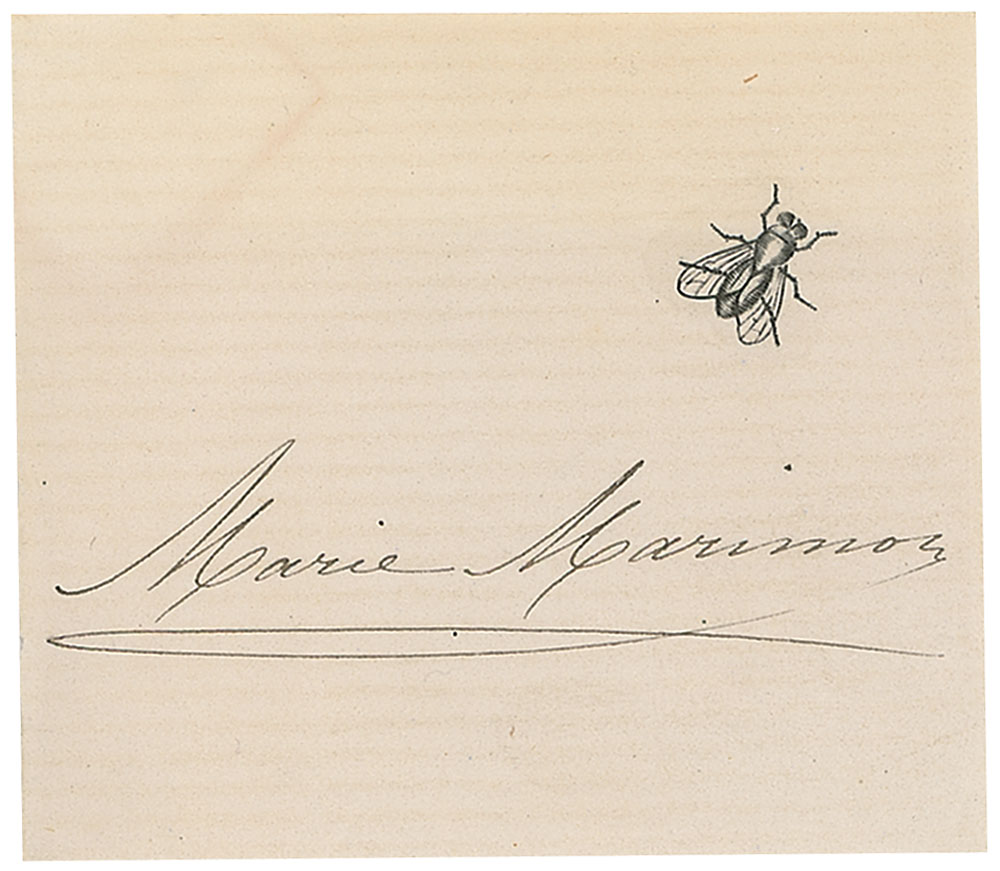 Marie Marimon